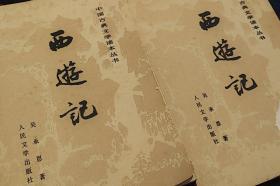 中国古典文学读本丛书
西遊記
吴承恩 著
人民文学出版社
古典文学读本丛书
西遊記
吴承恩 著
人民文学出版社